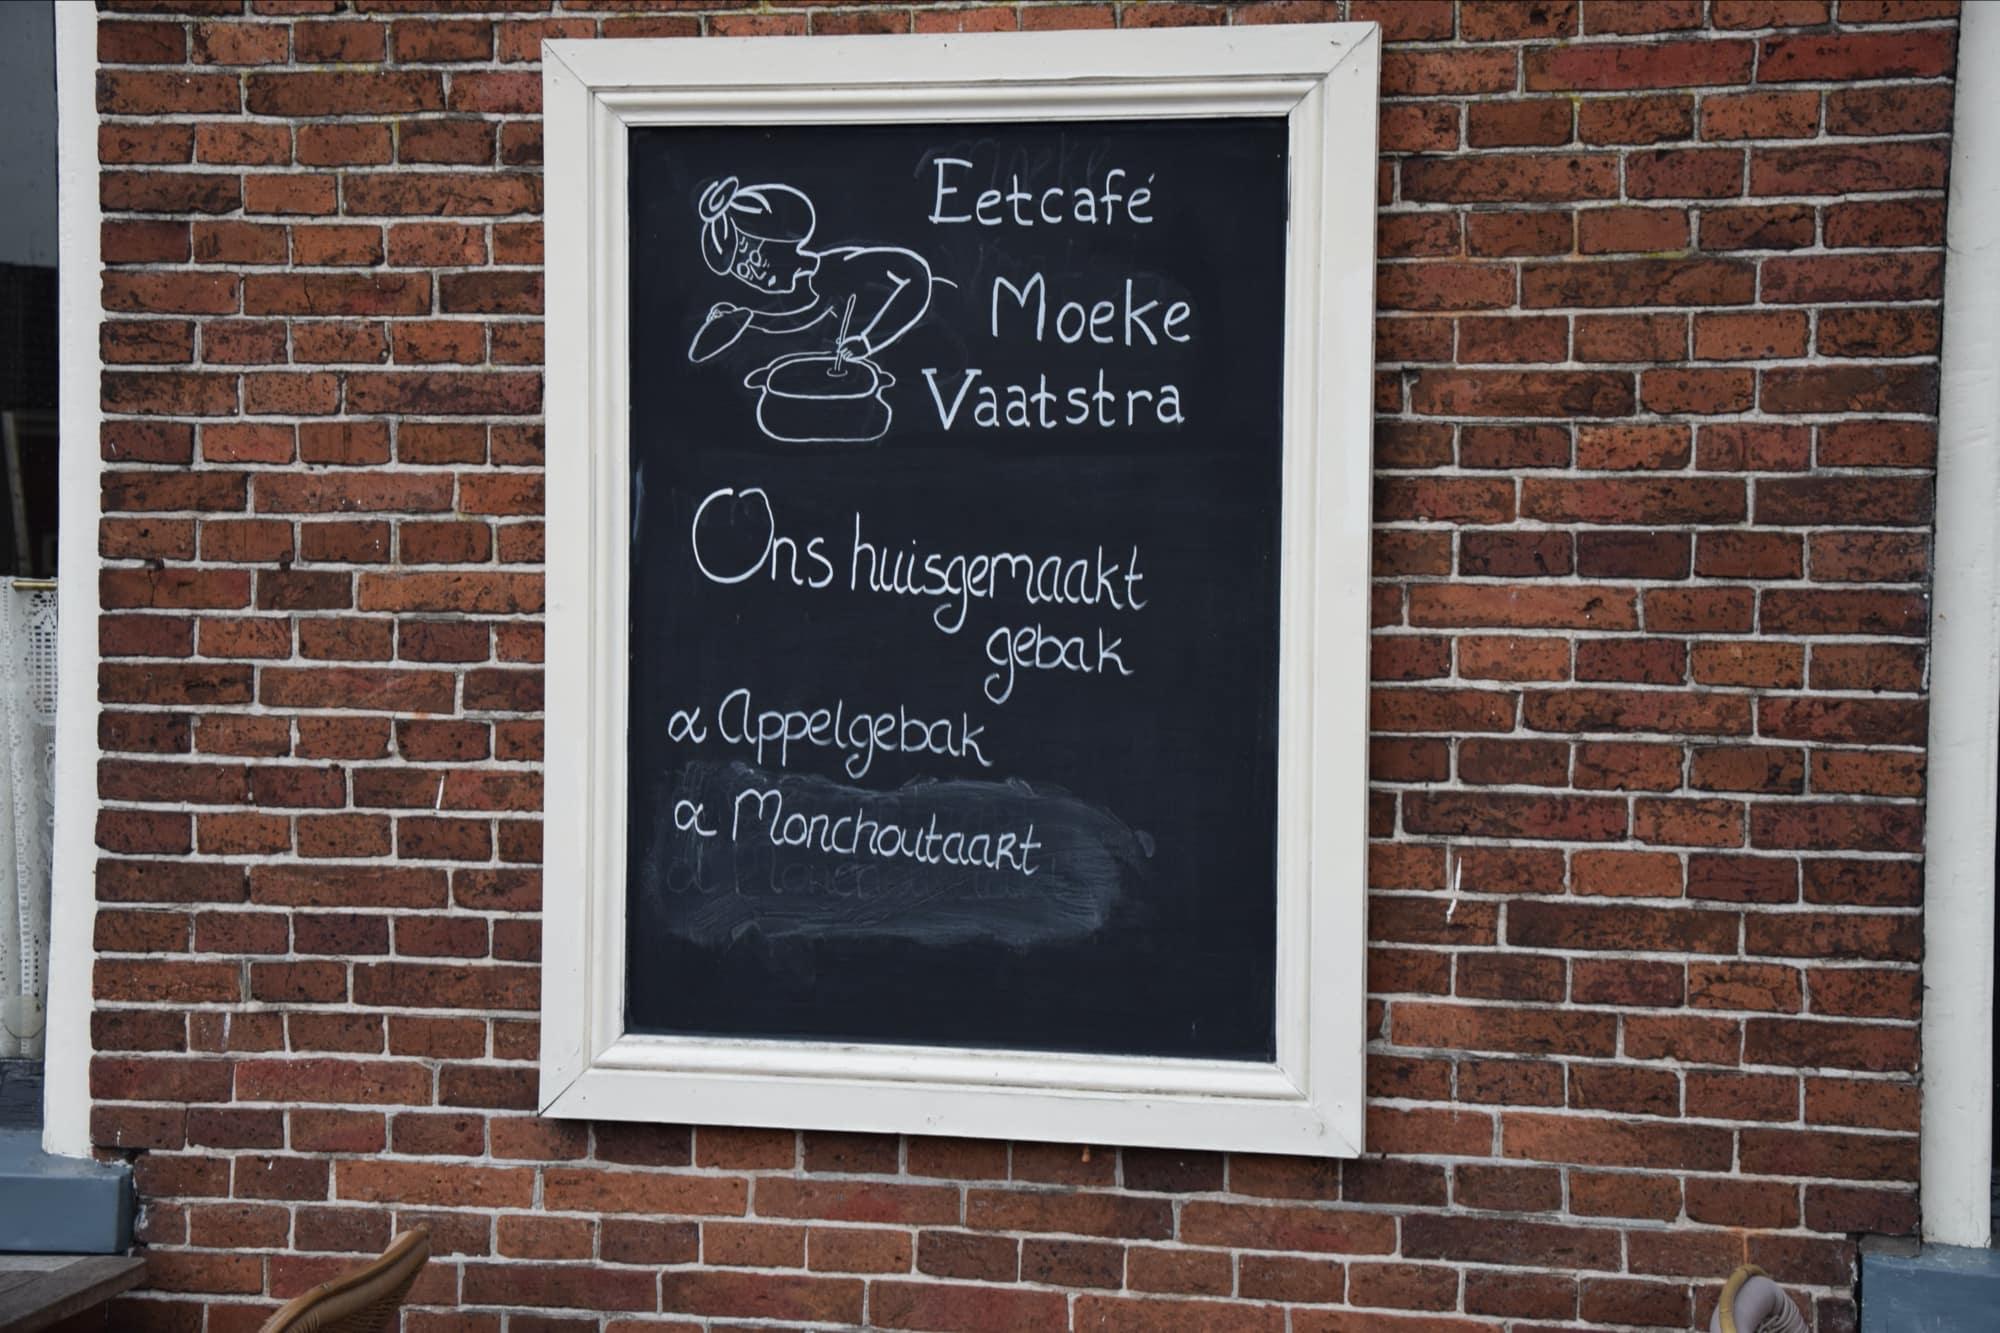 Eetcafé
Moeke
Vaatstra
Ons huisgemaakt
gebak
α Appelgebak
α Monchoutaart